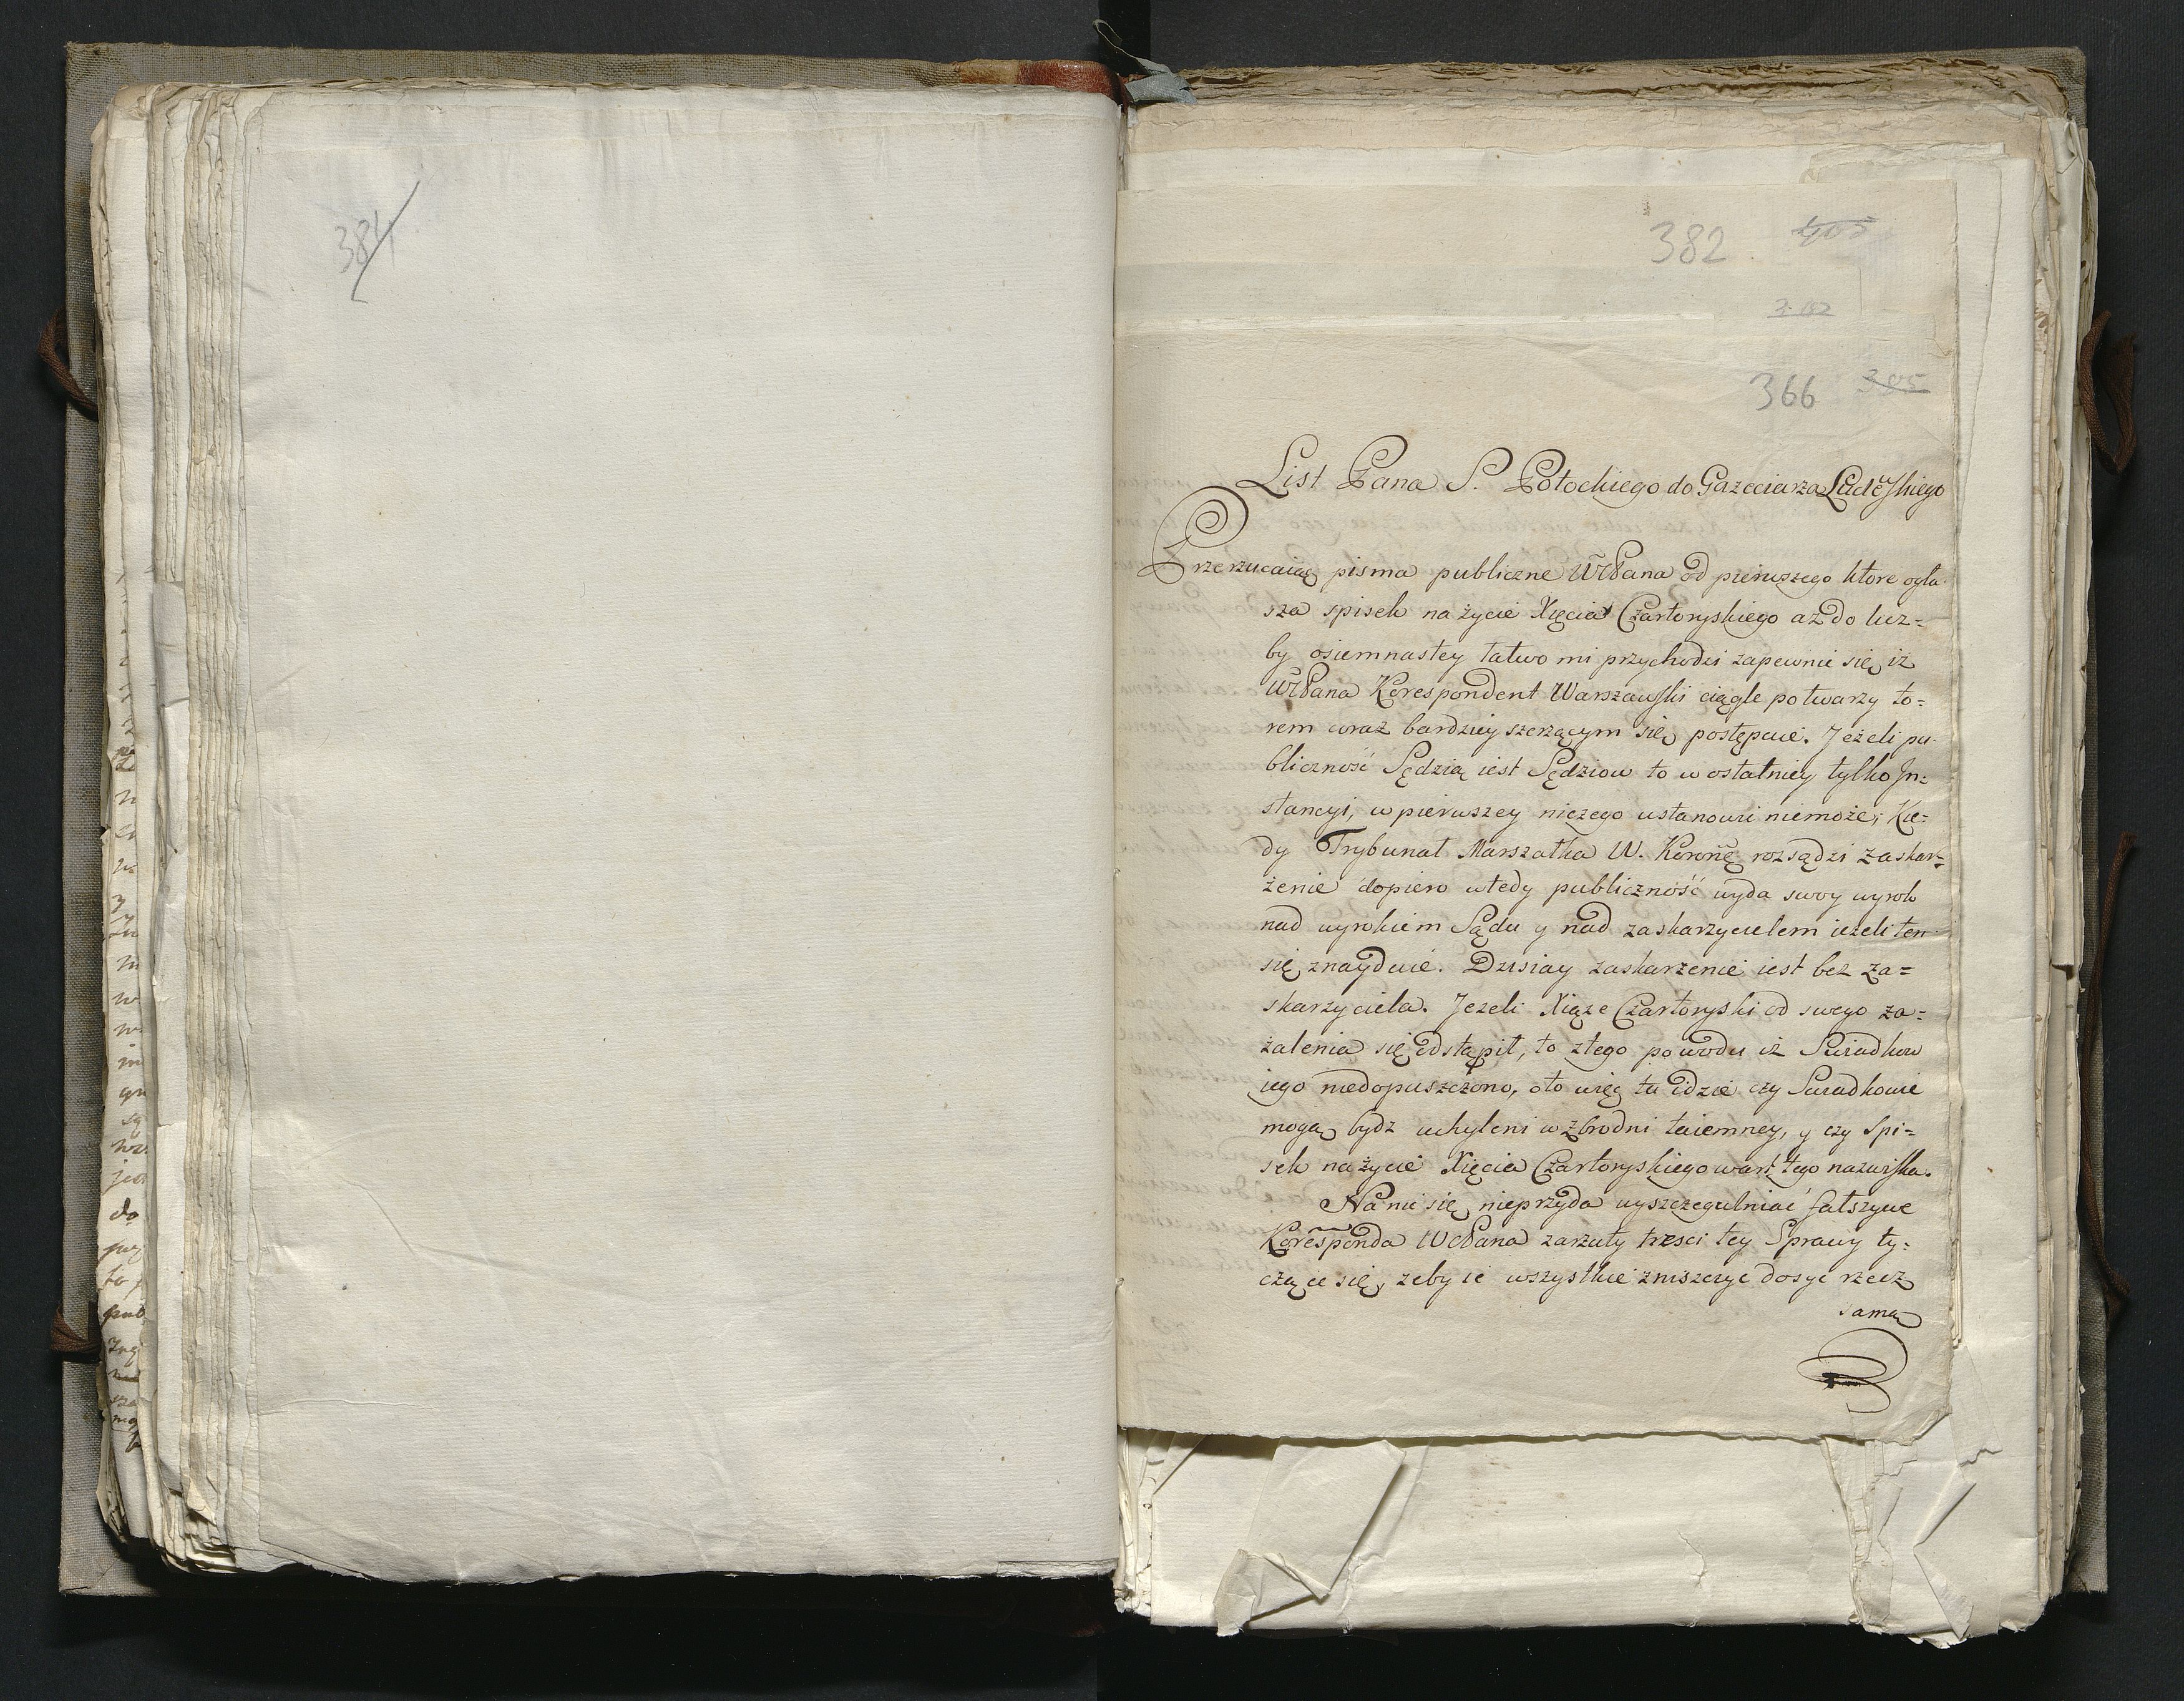 384
382
366 385
List Pana S. Potockiego do Gazeciarza
Przerzucaiąc pisma publiczne WPana od pierwszego ktore ogła-
sza spisek na życie Xięcia Czartoryskiego aż do licz=
by osiemnastey łatwo mi przychodzi zapewnić się iż
WPana Korespondent Warszawski ciągle potwarzy to=
rem coraz bardziey szerzącym się postępuie. Jeżeli pu-
bliczność Sędzią iest Sędziow to w ostatniey tylko In=
stancyi, w pierwszey niczego ustanowić niemoże, Kie=
dy Trybunał Marszałka W. Koronę rozsądzi zaskar=
żenie dopiero wtedy publiczność wyda swoy wyrok
nad wyrokiem Sądu y nad zaskarzycielem ieżeli ten
się znayduie. Dzisiay zaskarżenie iest bez za=
skarzyciela. Jeżeli Xiąże Czartoryski od swego za=
żalenia się odstąpił, to z tego powodu iż Swiadkow
iego niedopuszczono, oto więc tu idzie czy Swiadkowie
mogą bydz uchyleni w zbrodni taiemney, y czy Spi=
sek na życie Xięcia Czartoryskiego wart tego nazwiska.
Na nic się nieprzyda wyszczegulniać fałszywe
Koresponda WPana zarzuty tresci tey Sprawy ty=
czące się, żeby ie wszystkie zniszczyć dosyć rzecz
samą